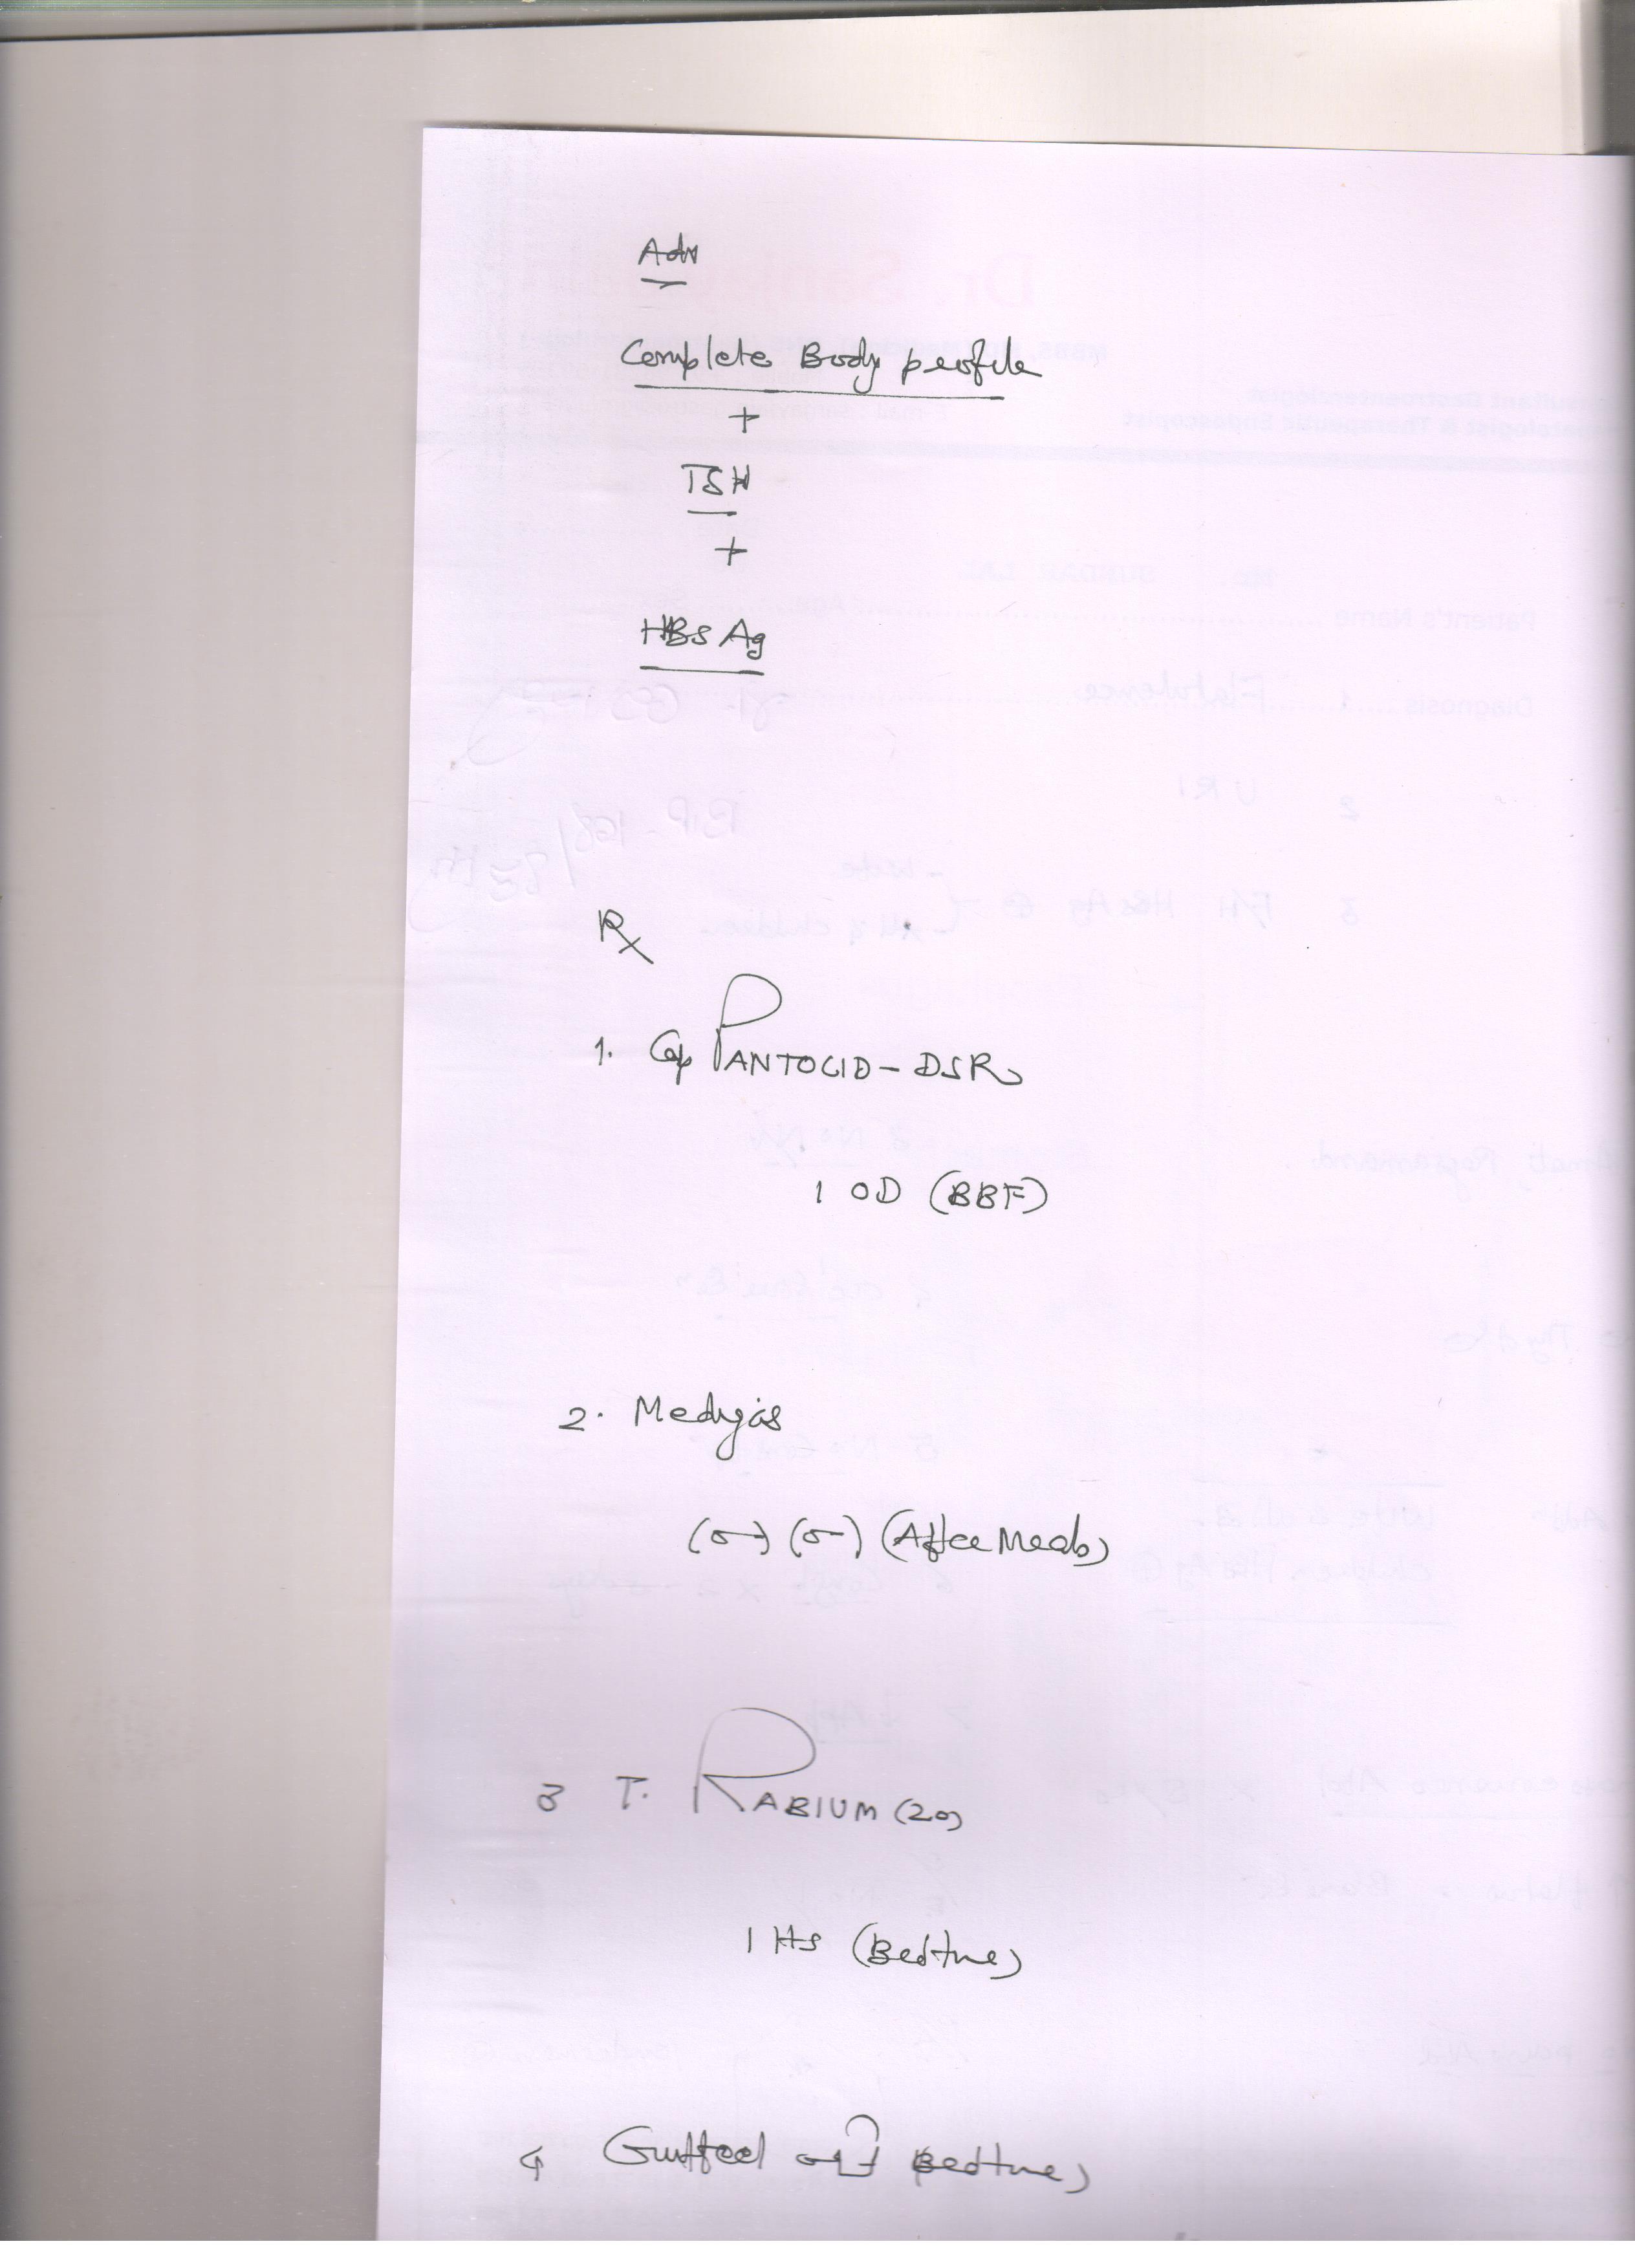 Adv
Complete Body profile
+
TSH
+
HBsAg
Rx
1. Cap PANTOCID-DSR
1 OD (BBF)
2. Medygas
(After Meals)
3 T. RABIUM (20)
1 HS (Bedtime)
4 Bedtime)